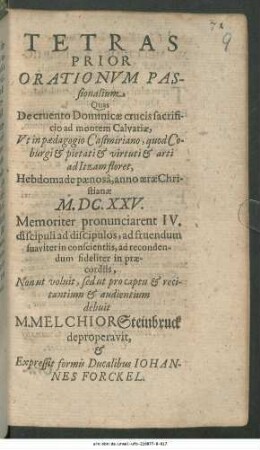 9
TETRAS
PRIOR
ORATIONVM PAS-
sionalium
Quas
De cruento Dominicæ crucis sacrifi-
cio ad montem Calvariæ,
Vt in pædagogio Casimiriano, quod Co-
burgi & pietati & virtuti & arti
ad Itzam floret,
Hebdomade pœnosâ, anno æræ Chri-
stianæ
M. DC. XXV.
Memoriter pronunciarent IV,
discipuli ad discipulos, ad struendum
suaviter in conscientiis, ad reconden-
dum fideliter in præ-
cordiis,
Non ut voluit, sed ut pro captu & reci-
tantium & audientium
debuit
M. MELCHIOR Steinbruck
deproperavit,
&
Expressit formis Ducalibus IOHAN-
NES FORCKEL.